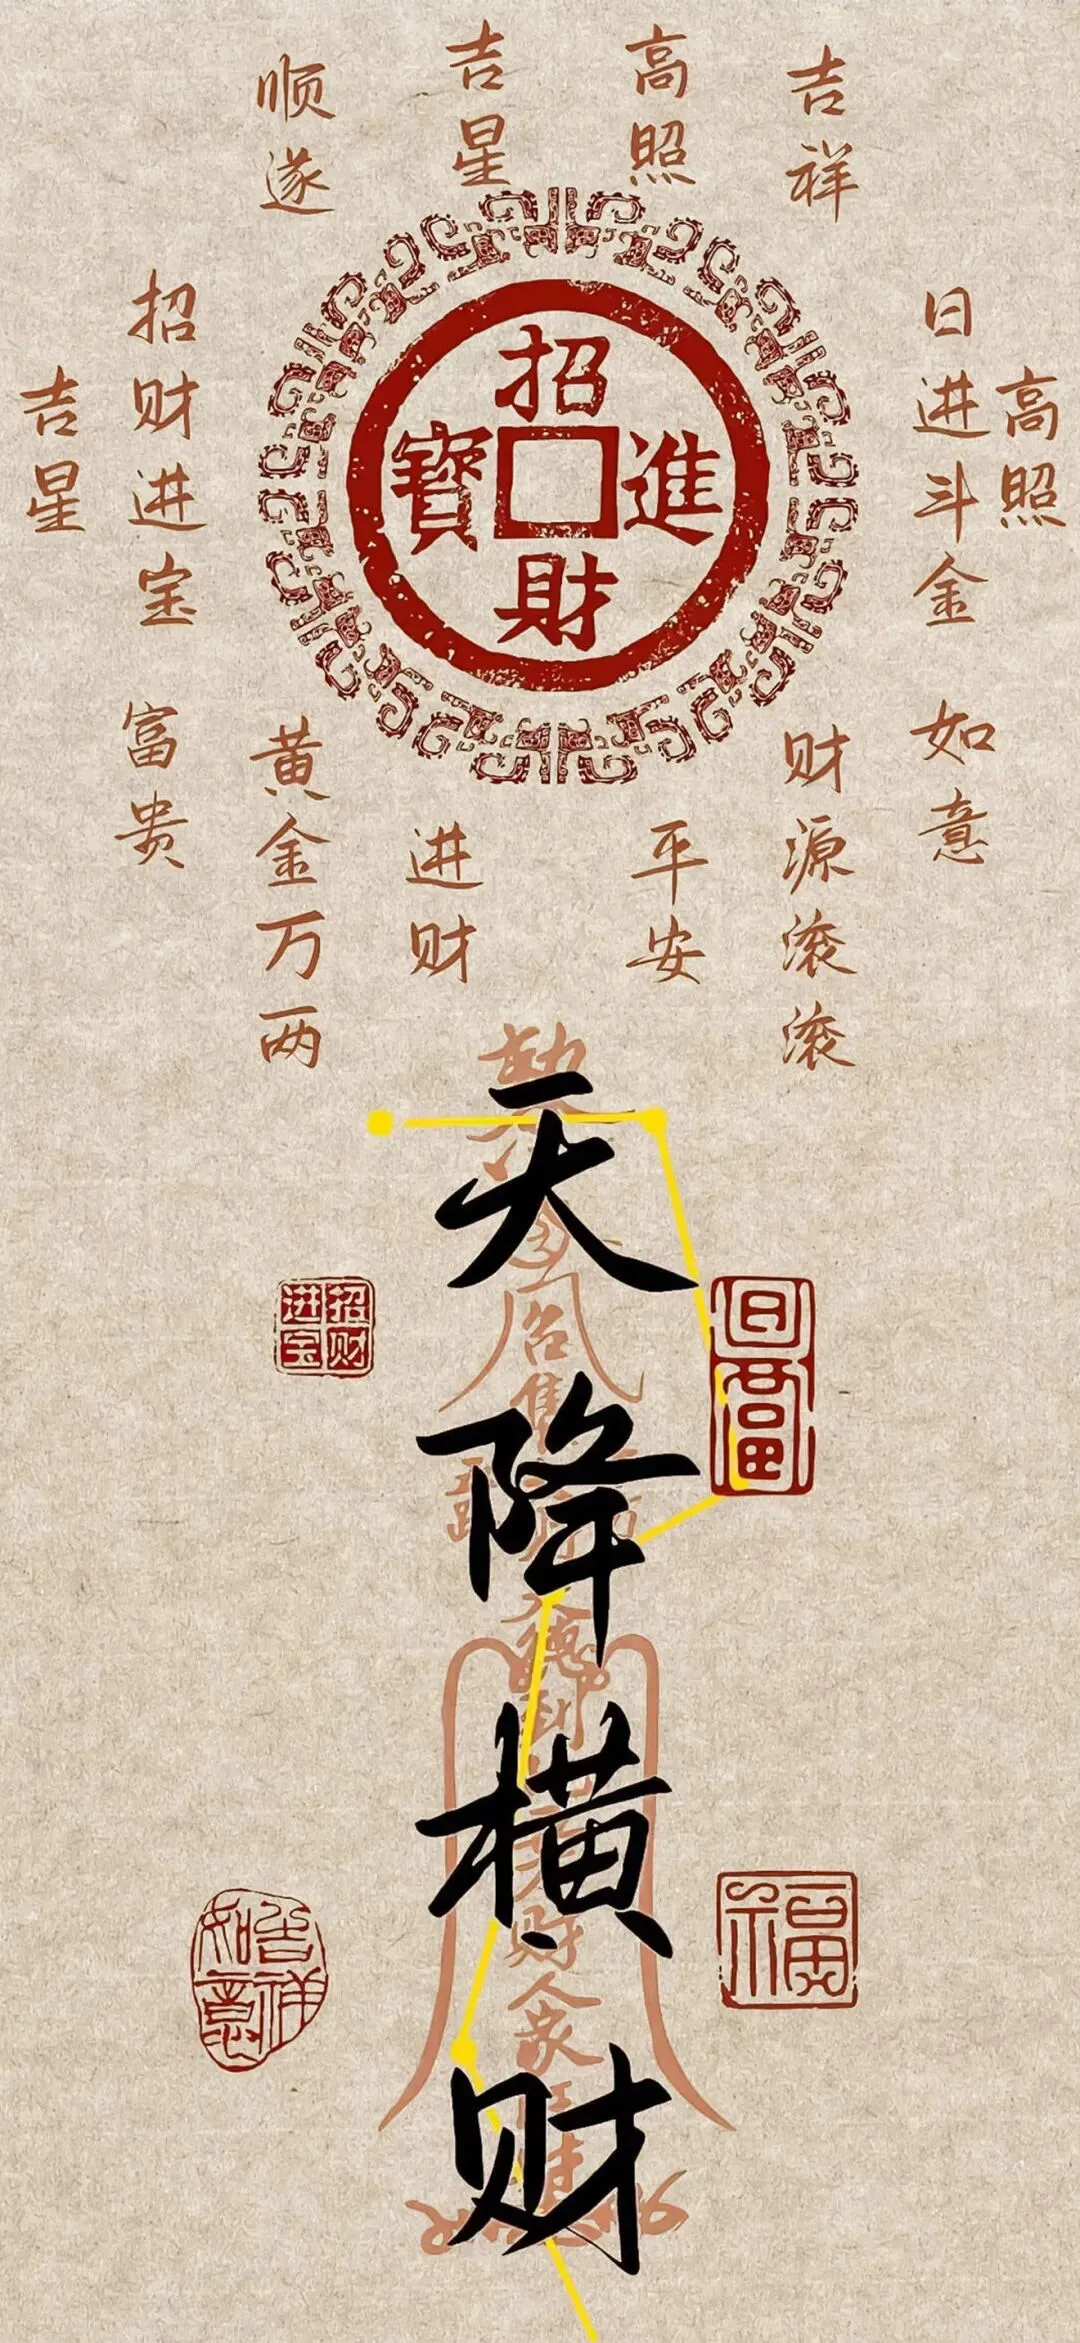 顺遂
吉星
高照
吉祥
吉星
招财进宝
日进斗金
高照
招財進寶
富贵
黄金万两
进财
平安
财源滚滚
如意
天降横财
招财进宝
吉祥如意
福